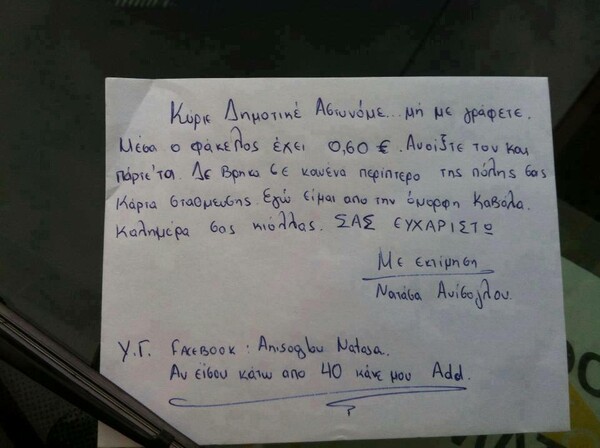 Κύριε Δημοτικέ Αστυνόμε... μή με γράφετε.
Μέσα ο φάκελος έχει 0,60 €. Ανοίξτε τον και
πάρτε τα. Δε βρήκα σε κανένα περίπτερο της πόλης σας
κάρτα στάθμευσης. Εγώ είμαι απο την όμορφη Καβάλα.
Καλημέρα σας κιόλας. ΣΑΣ ΕΥΧΑΡΙΣΤΩ
Με εκτίμηση
Νατάσα Ανίσογλου.
Υ.Γ. FACEBOOK: Anisoglou Natasa.
Αν είσαι κάτω απο 40 κάνε μου Add.